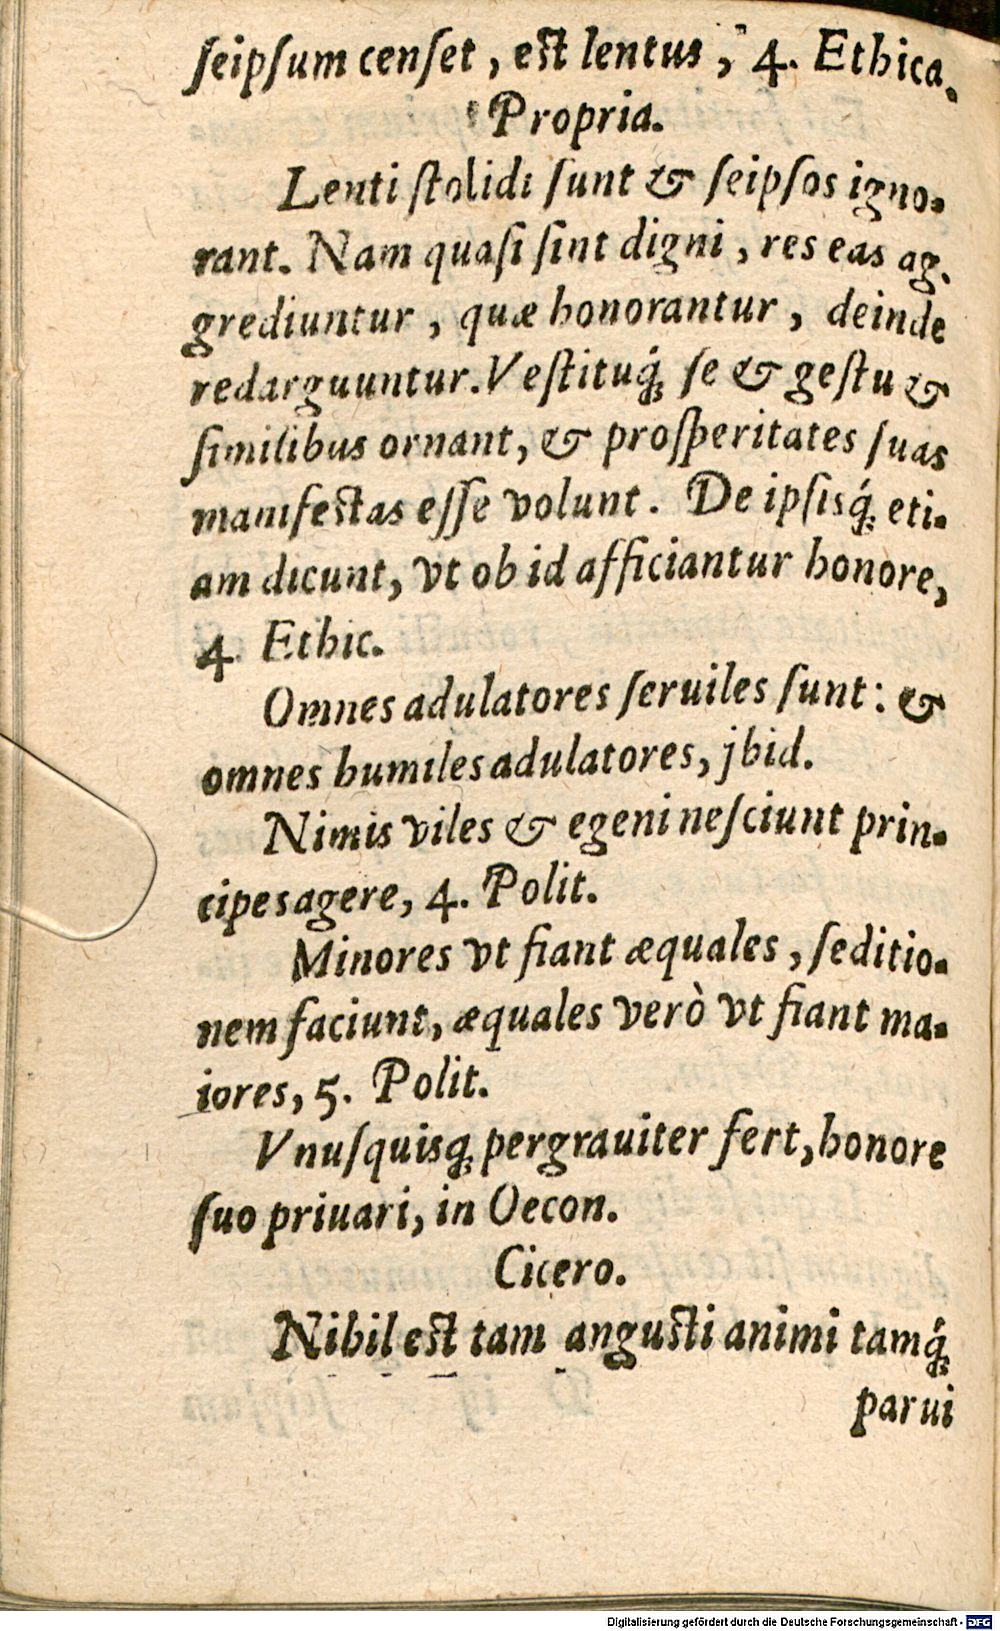 ſeipſum cenſet, eſt lentus, 4. Ethica.
Propria.
Lenti ſtolidi ſunt & ſeipſos igno-
rant. Nam quaſi ſint digni, res eas ag-
grediuntur, quæ honorantur, deinde
redarguuntur. Veſtituq́; ſe & geſtu &
ſimilibus ornant, & proſperitates ſuas
manifeſtas eſſe volunt. De ipſisq́; eti-
am dicunt, vt ob id afficiantur honore,
4. Ethic.
Omnes adulatores ſeruiles ſunt: &
omnes humiles adulatores, jbid.
Nimis viles & egeni neſciunt prin-
cipes agere, 4. Polit.
Minores vt fiant æquales, ſeditio-
nem faciunt, æquales verò vt fiant ma-
iores, 5. Polit.
Vnuſquisq; pergrauiter fert, honore
ſuo priuari, in Oecon.
Cicero.
Nihil eſt tam anguſti animi tamq́;
parui
Digitalisierung gefördert durch die Deutsche Forschungsgemeinschaft - DFG